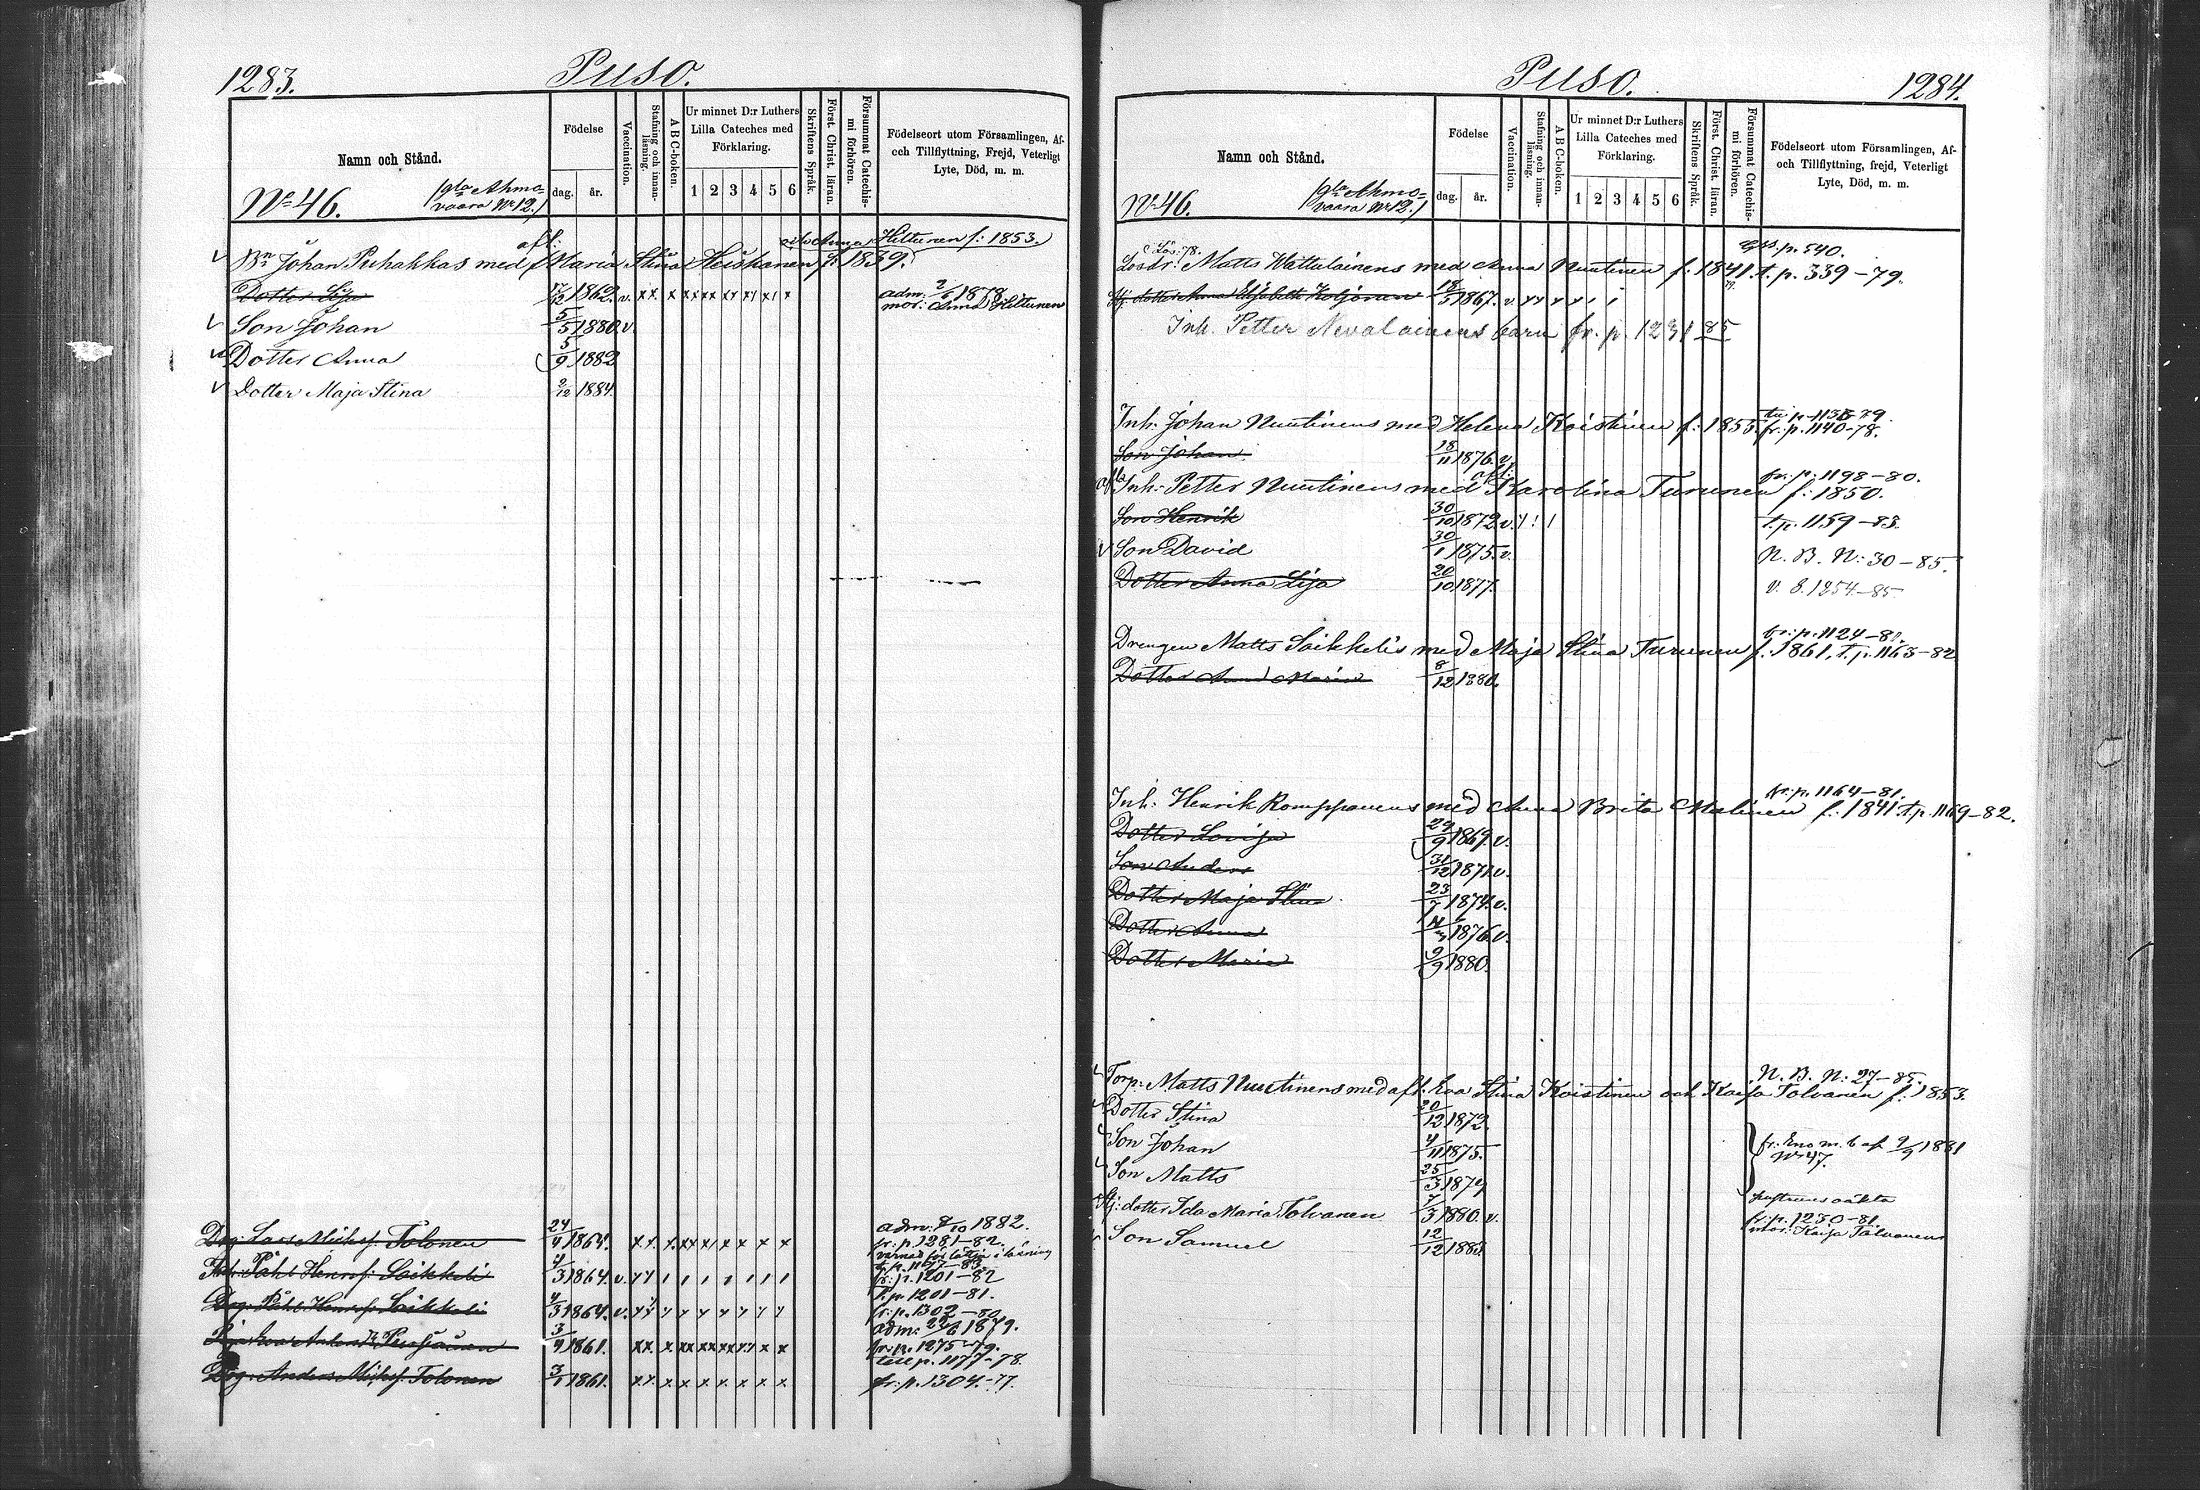 1283.
Puso.
Namn och Stånd.
Födelse
dag.
år.
Vaccination.
Stafning och innanläsning.
A B C-boken.
Ur minnet D:r Luthers
Lilla Cateches med
Förklaring.
1 2 3 4 5 6
Skriftens Språk.
Först. Christ. läran.
Försummat Catechismi förhören.
Födelseort utom Församlingen, Af-
och Tillflyttning, Frejd, Veterligt
Lyte, Död, m. m.
No 46.
/gla Ahmo-
vaara No 12./
afl:
och Anna Hiltunen f: 1853.
Bn Johan Puhakkas med Maria Stina Heiskanen f: 1839.
Dotter Lisa 17/12 1862. v. adm. 2/6 1878.
mor: Anna Hiltunen
Son Johan 5/5 1880. v.
Dotter Anna 5/9 1882
Dotter Maja Stina 2/12 1884.
Drg. Lars Michsf. Tolonen 24/4 1864. adm: 8/10 1882.
fr: p. 1281-82.
varnad för lättja i läsning
t. p. 1177-83.
Påhl Henrsf: Saikkeli 4/3 1864. v. fr: p. 1201-82
t. p. 1201-81.
Drg: Påhl Henrsf. Saikkeli 4/3 1864. v. fr: p. 1302-80.
adm: 1879.
3/4 1861. fr: p. 1275-79.
till p. 1177-78.
Drg: Anders Michsf. Tolonen 3/1 1861. fr: p. 1304.-77.
Puso.
1284.
Namn och Stånd.
Födelse
dag.
år.
Vaccination.
Stafning och innanläsning.
A B C-boken.
Ur minnet D:r Luthers
Lilla Cateches med
Förklaring.
1 2 3 4 5 6
Skriftens Språk.
Först. Christ. läran.
Försummat Catechismi förhören.
Födelseort utom Församlingen, Af-
och Tillflyttning, frejd, Veterligt
Lyte, Död, m. m.
No 46.
/gla Ahmo-
vaara No 12./
p. 540.
Losdr. Matts Wattulainens med Anna Nuutinen f: 1841. t. p. 339-79.
Stj: dotter Anna Elisabeth Koljonen 18/5 1867. v.
Inh. Petter Nevalainens barn fr. p. 1231 85
till p. 1138-79.
Inh: Johan Nuutinens med Helena Koistinen f: 1855. fr: p. 1140-78.
Son Johan 18/11 1876. v.
fr: p: 1198-80.
afl:
Inh: Petter Nuutinens med Karolina Turunen f: 1850.
Son Henrik 30/10 1872. v. t. p. 1159-83.
Son David 30/1 1875. v. N. B. N: 30-85.
Dotter Anna Lisa 20/10 1877. v. s. 1254-85
fr: p. 1124-81.
Drengen Matts Saikkelis med Maja Stina Turunen f. 1861, t. p. 1163-82
Dotter Anna Maria 8/12 1880.
fr: p. 1164-81.
Inh: Henrik Romppanens med Anna Brita Malinen f: 1841. t. p. 1169-82.
Dotter Lovisa 29/9 1869. v.
Son Anders 31/12 1871. v.
Dotter Maja Stina 23/7 1874. v.
Dotter Anna 1876. v.
Dotter Maria 9/9 1880.
N. B. N: 27-85.
Torp: Matts Nuutinens med afl: Eva Stina Koistinen och Kaisa Tolvanen f: 1853.
Dotter Stina 20/12 1872.
Son Johan 4/11 1875. fr: Eno m. b. af 9/9 1881
No 47.
Son Matts 25/3 1879
hustruns oäkta
Stj: dotter Ida Maria Tolvanen 7/3 1880. v. fr: p. 1230-81.
mor: Kaisa Tolvanen
Son Samuel 12/12 1883.